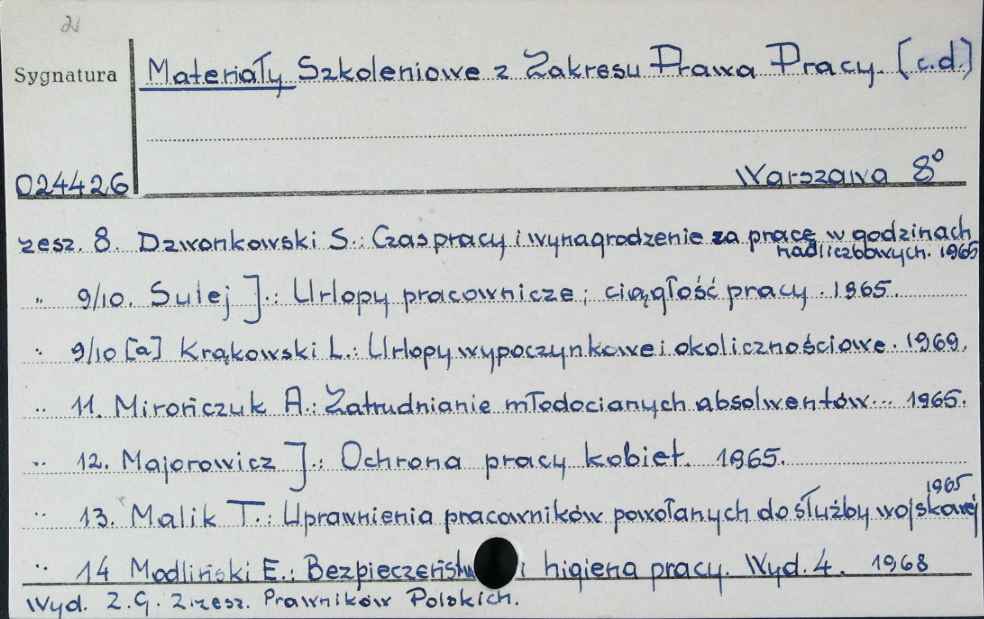 2
Sygnatura
Materiały Szkoleniowe z Zakresu Prawa Pracy. [c.d.]
024426
Warszawa 8°
zesz. 8. Dzwonkowski S.: Czas pracy i wynagrodzenie za pracę w godzinach
nadliczbowych. 1965
" 9/10. Sulej J.: Urlopy pracownicze; ciągłość pracy. 1965.
" 9/10 [a] Krąkowski L.: Urlopy wypoczynkowe i okolicznościowe. 1969.
" 11. Mirończuk A.: Zatrudnianie młodocianych absolwentów... 1965.
" 12. Majorowicz J.: Ochrona pracy kobiet. 1965.
1965
" 13. Malik T.: Uprawnienia pracowników powołanych do służby wojskowej
" 14 Modliński E.: Bezpieczeństw i higiena pracy. Wyd. 4. 1968
Wyd. Z.G. Zrzesz. Prawników Polskich.